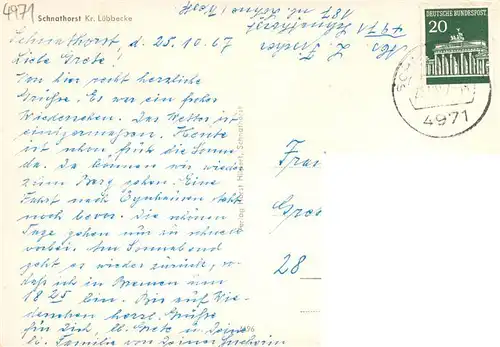 4971
Schnathorst Kr. Lübbecke
4971 Schnathorst
187
Schnathorst, d. 25.10.67
Liebe Grete!
Von hier recht herzliche
Grüße. Es war ein frohes
Wiedersehen. Das Wetter ist
einigermassen. Heute
ist schon früh die Sonne
da. Da können wir wieder
zum Berg gehen. Eine
Fahrt nach Eynhausen steht
noch bevor. Die schönen
Tage gehen nur zu schnell
vorbei. Am Sonnabend
geht es wieder zurück, so
daß ich in Bremen um
18 25 bin. Bis auf Wie-
dersehen herzl. Grüße
für Dich, lb. Grete u. Deine
lb. Familie von Deiner
Verlag Horst Hubert, Schnathorst
DEUTSCHE BUNDESPOST
20
4971
28